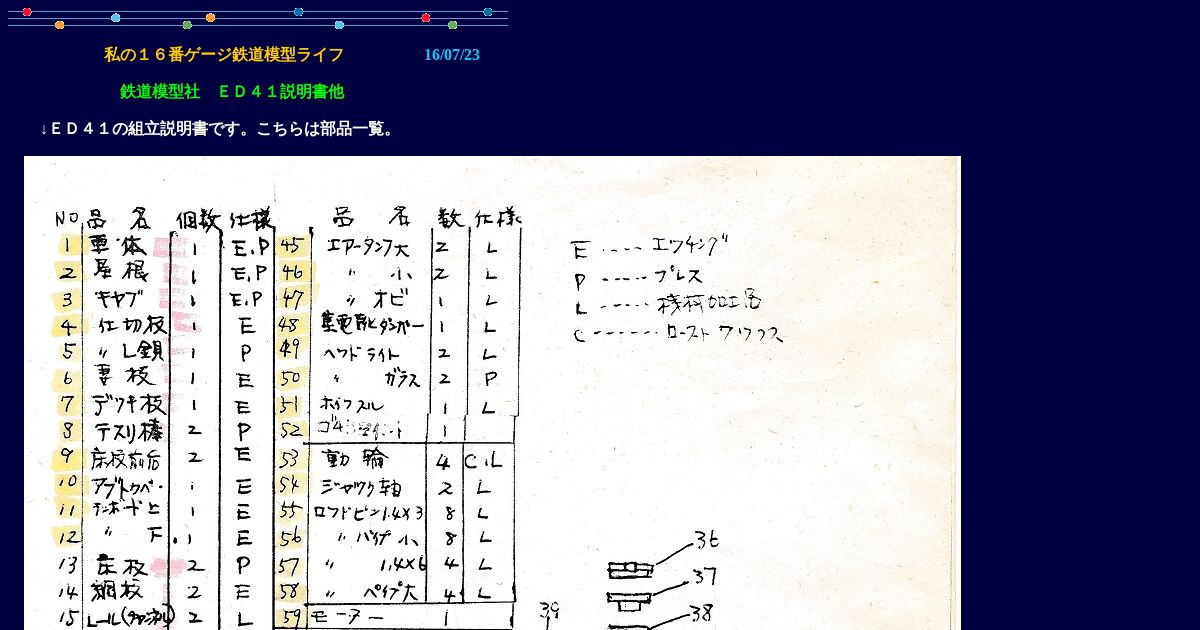 私の１６番ゲージ鉄道模型ライフ 16/07/23
鉄道模型社 ＥＤ４１説明書他
↓ＥＤ４１の組立説明書です。こちらは部品一覧。
NO 品名 個数 仕様 品名 数 仕様
1 車体 1 E.P 45 エアータンク大 2 L
2 屋根 1 E.P 46 〃 小 2 L
3 キヤブ 1 E.P 47 〃 オビ 1 L
4 仕切板 1 E 48 1 L
5 〃 L 1 P 49 ヘツドライト 2 L
6 妻板 1 E 50 〃 ガラス 2 P
7 デツキ板 1 E 51 ホイツスル 1 L
8 テスリ棒 2 P 52 1
9 床板前后 2 E 53 動輪 4 C.L
10 1 E 54 ジヤツク軸 2 L
11 1 E 55 ロツドピン1.4×3 8 L
12 〃 下 1 E 56 〃 パイプ小 8 L
13 床板 2 P 57 〃 1.4×6 4 L
14 側板 2 E 58 〃 パイプ大 4 L
15 レール(チャンネル) 2 L 59 モーター 1
E ---- エツチング
P ----- プレス
L ----- 機械加工品
C ------- ロースト ワックス
36
37
38
39